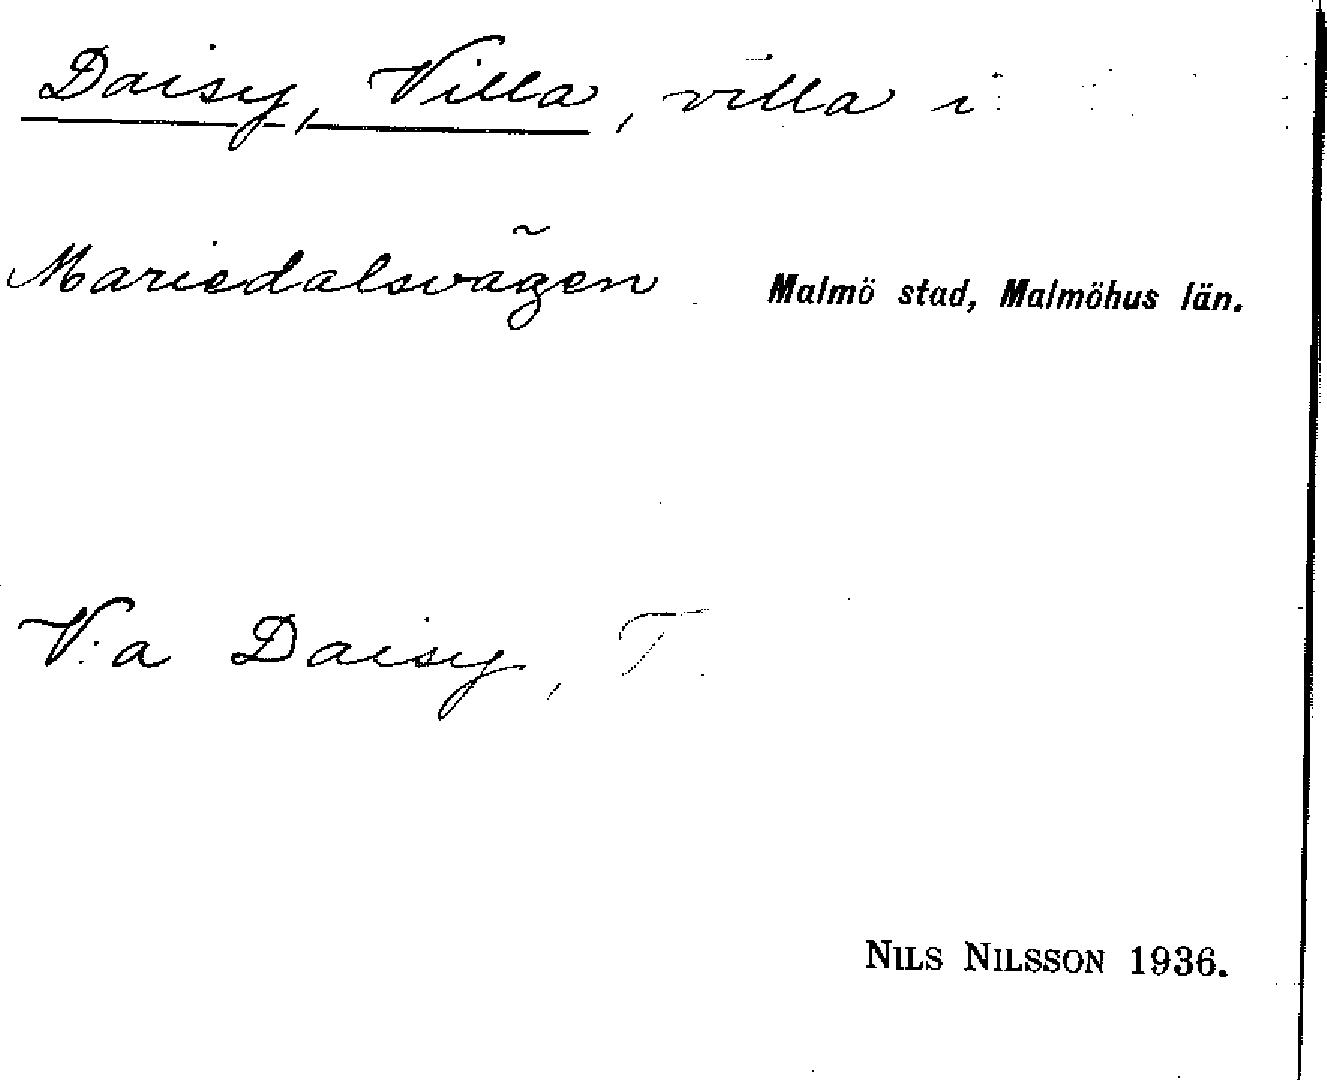 Daisy, Villa, villa i
Mariedalsvägen Malmö stad, Malmöhus län.
V:a Daisy, T.
NILS NILSSON 1936.